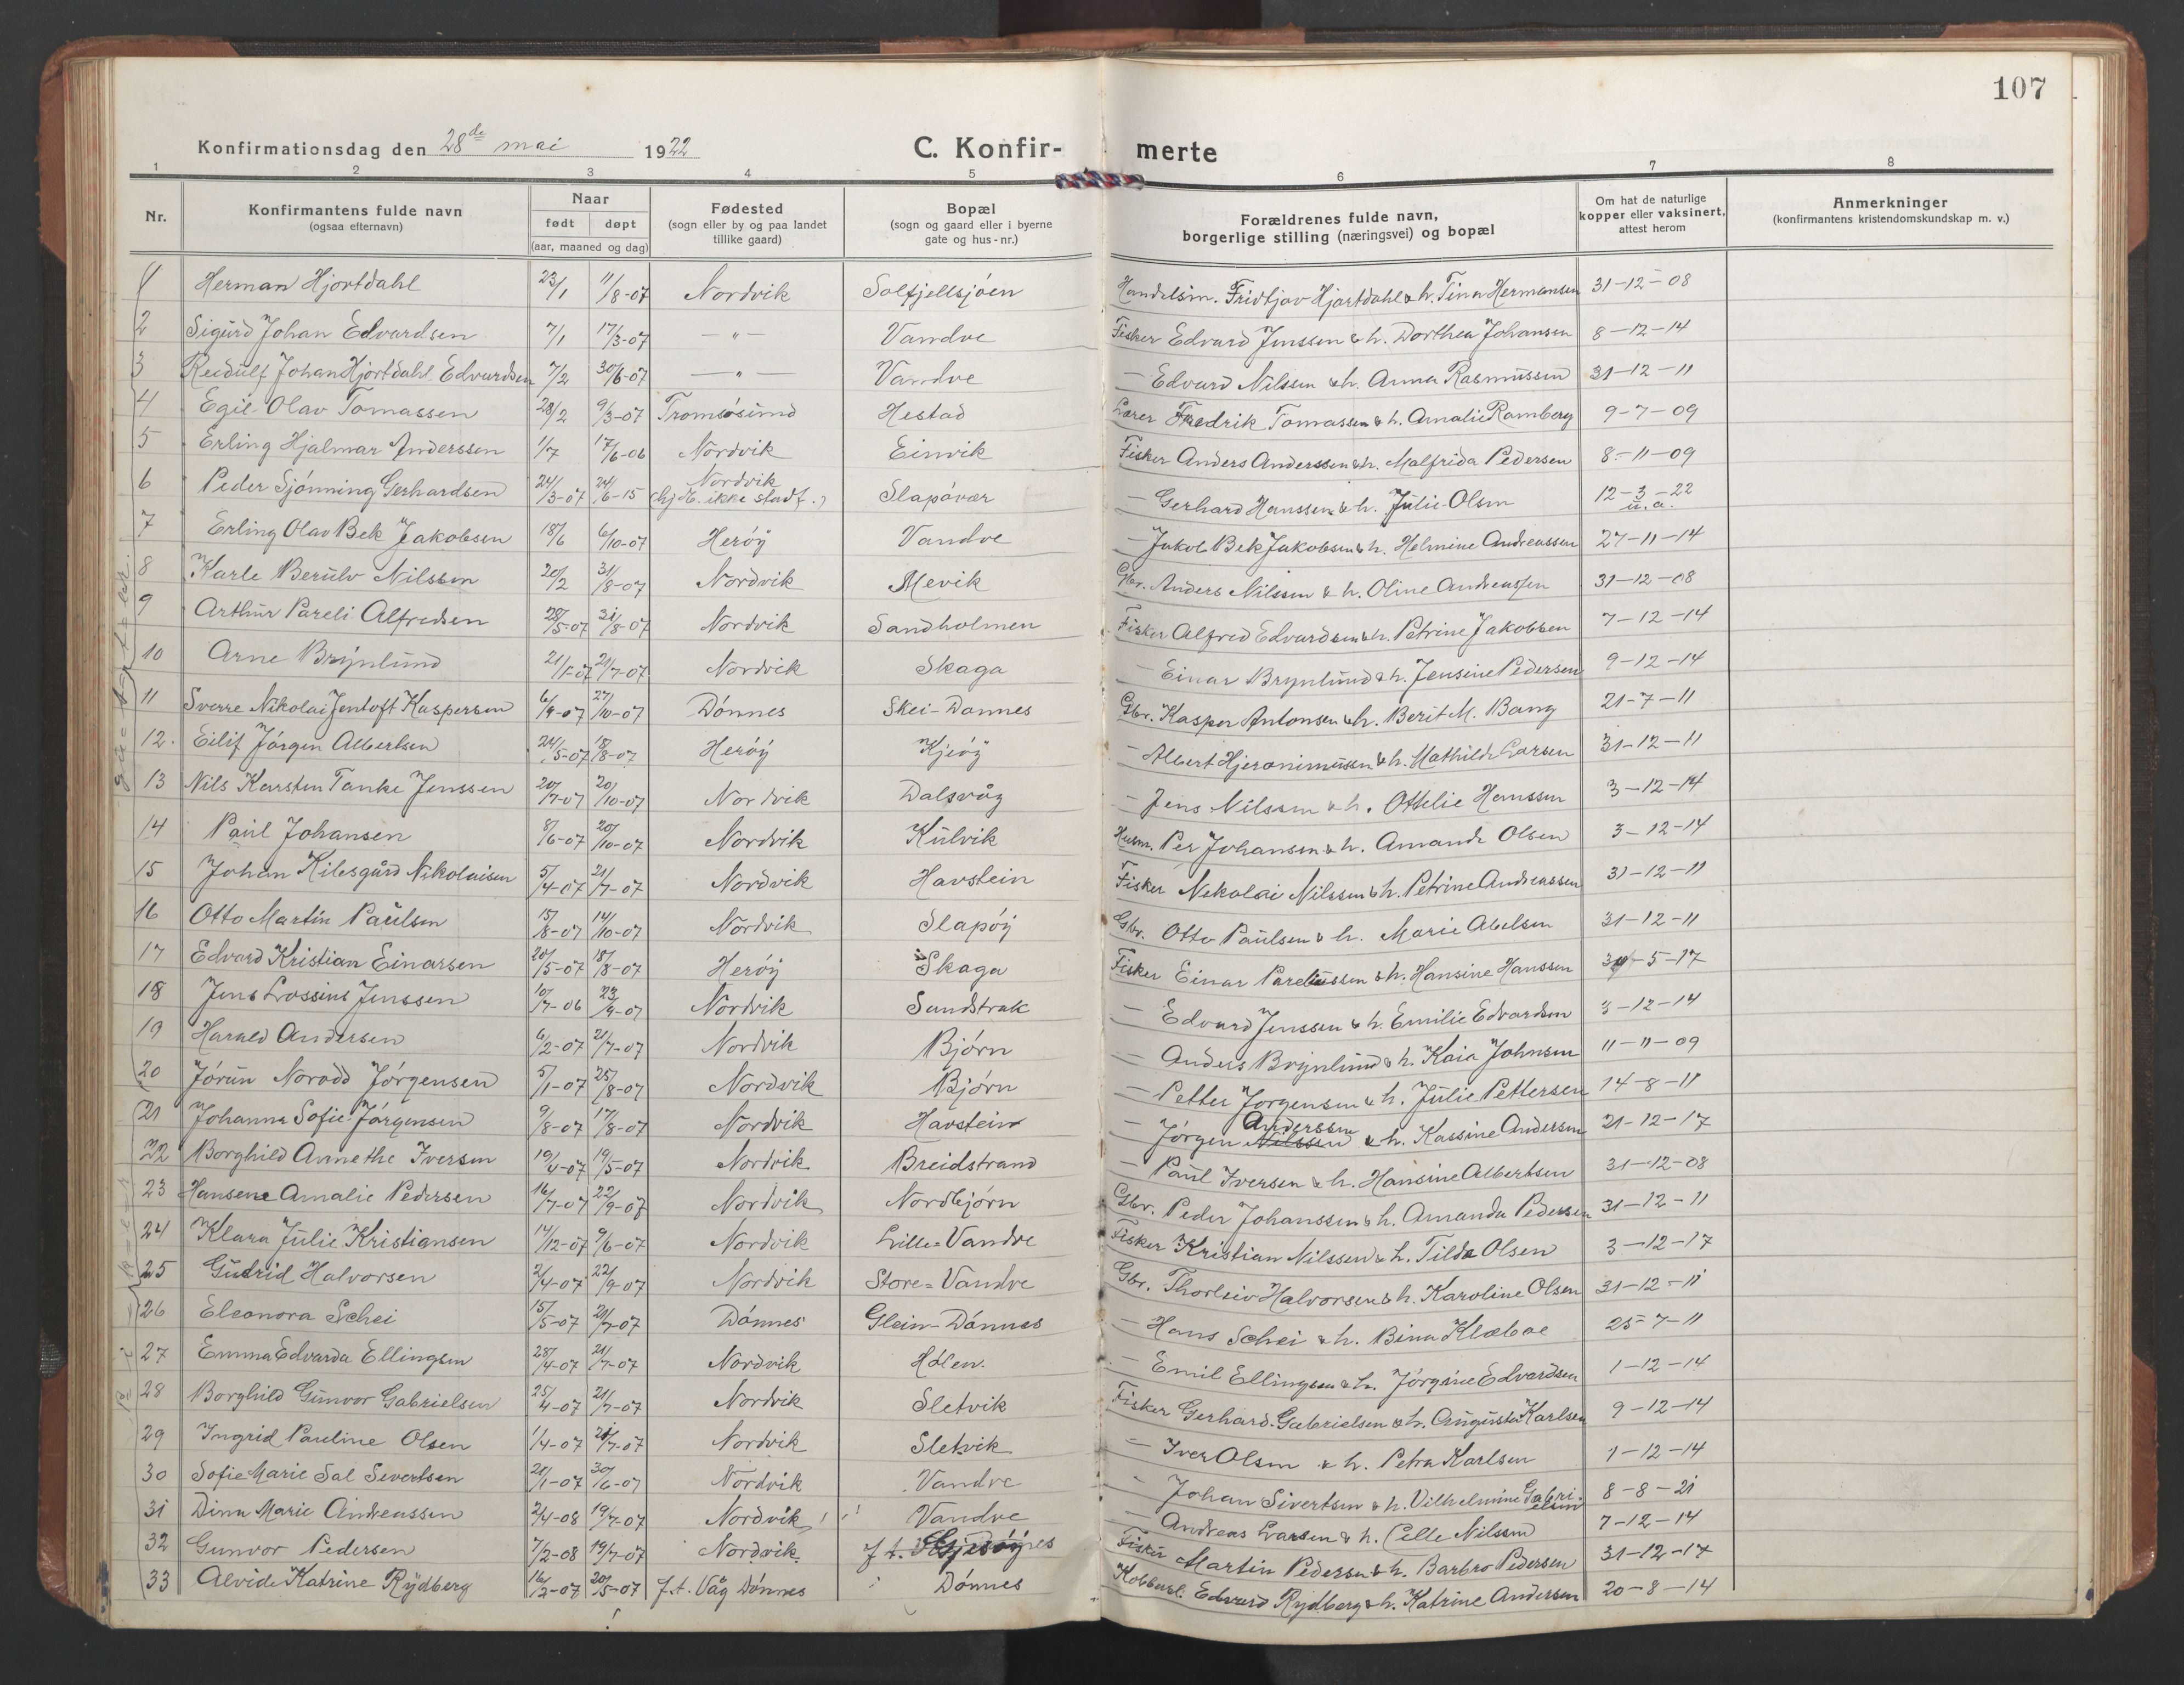 107
Konfirmationsdag den 28de mai 1922
C. Konfir-merte
1 2 3 4 5 6 7 8
Nr.
Konfirmantens fulde navn
(ogsaa efternavn)
Naar
født døpt
(aar, maaned og dag)
Fødested
(sogn eller by og paa landet
tillike gaard)
Bopæl
(sogn og gaard eller i byerne
gate og hus-nr.)
Forældrenes fulde navn,
borgerlige stilling (næringsvei) og bopæl
Om hat de naturlige
kopper eller vaksinert,
attest herom
Anmerkninger
(konfirmantens kristendomskundskap m. v.)
1 Herman Hjortdahl 23/1 11/8-07 Nordvik Solfjellsjøen Handelsm. Fridtjov Hjortdahl & h. Tina Hermansen 31-12-08
2 Sigurd Johan Edvardsen 7/1 17/3-07 -"- Vandve Fisker Edvard Jenssen & h. Dorthea Johansen 8-12-14
3 Reidulf Johan Hjortdahl Edvardsen 7/2 30/6-07 -"- Vandve - Edvard Nilssen & h. Anna Rasmussen 31-12-11
4 Egil Olav Tomassen 28/2 9/3-07 Tromsøsund Hestad Lærer Fredrik Tomassen & h. Amalie Ramberg 9-7-09
5 Erling Hjalmar Anderssen 1/7 17/6-06 Nordvik Einvik Fisker Anders Anderssen & h. Malfrida Pedersen 8-11-09
6 Peder Sjønning Gerhardsen 24/3-07 24/6-15 Nordvik
(hj.d. ikke stadf.) Slapøvær - Gerhard Hanssen & h. Julie Olsen 12-3-22
u.a.
7 Erling Olav Bek Jakobsen 18/6 6/10-07 Herøy Vandve - Jakob Bek Jakobsen & h. Helmine Andreassen 27-11-14
8 Karle Berulv Nilssen 20/2 31/8-07 Nordvik Mevik Gbr. Anders Nilssen & h. Oline Andreassen 31-12-08
9 Arthur Pareli Alfredsen 28/5-07 31/8-07 Nordvik Sandholmen Fisker Alfred Edvardsen & h. Petrine Jakobsen 7-12-14
10 Arne Brynlund 21/1-07 21/7-07 Nordvik Skaga - Einar Brynlund & h. Jensine Pedersen 9-12-14
11 Sverre Nikolai Jentoft Kaspersen 6/9-07 27/10-07 Dønnes Skei-Dønnes Gbr. Kasper Antonsen & h. Berit M. Bang 21-7-11
12. Eilif Jørgen Albertsen 24/5-07 18/8-07 Herøy Kjeøy - Albert Hjeronimussen & h. Mathilde Larsen 31-12-11
13 Nils Karsten Tanke Jenssen 20/7-07 20/10-07 Nordvik Dalsvåg - Jens Nilssen & h. Ottelie Hanssen 3-12-14
14 Paul Johansen 8/6-07 20/10-07 Nordvik Kulvik Husm. Per Johansen & h. Amanda Olsen 3-12-14
15 Johan Kilesgård Nikolaisen 5/4-07 21/7-07 Nordvik Havstein Fisker Nekolai Nilssen & h. Petrine Andreassen 31-12-11
16 Otto Martin Paulsen 15/8-07 14/10-07 Nordvik Slapøy Gbr. Otto Paulsen & h. Marie Abelsen 31-12-11
17 Edvard Kristian Einarsen 20/5-07 18/8-07 Herøy Skaga Fisker Einar Pareliussen & h. Hansine Hanssen 31-5-17
18 Jens Lossius Jenssen 10/7-06 23/9-07 Nordvik Sandstrak - Edvard Jenssen & h. Emilie Edvardsen 3-12-14
19 Harald Andersen 6/2-07 21/7-07 Nordvik Bjørn - Anders Brynlund & h. Kaia Johnsen 11-11-09
20 Jørun Norodd Jørgensen 5/1-07 25/8-07 Nordvik Bjørn - Petter Jørgensen & h. Julie Pettersen 14-8-11
21 Johanna Sofie Jørgensen 9/8-07 17/8-07 Nordvik Havstein - Jørgen Nilssen Anderssen & h. Kassine Andersen 21-12-17
22 Borghild Annethe Iversen 19/4-07 19/5-07 Nordvik Breidstrand - Paul Iversen & h. Hansine Albertsen 31-12-08
23 Hansene Amalie Pedersen 16/7-07 22/9-07 Nordvik Nordbjørn Gbr. Peder Johanssen & h. Amanda Pedersen 31-12-11
24 Klara Julie Kristiansen 14/12-07 9/6-07 Nordvik Lille=Vandve Fisker Kristian Nilssen & h. Tilda Olsen 3-12-17
25 Gudrid Halvorsen 2/4-07 22/9-07 Nordvik Store=Vandve Gbr. Thorleiv Halvorsen & h. Karoline Olsen 31-12-11
26 Eleonora Schei 15/5-07 21/7-07 Dønnes Glein-Dønnes - Hans Schei & h. Bina Klæboe 25-7-11
27 Emma Edvarda Ellingsen 28/4-07 21/7-07 Nordvik Hølen. - Emil Ellingsen & h. Jørgine Edvardsen 1-12-14
28 Borghild Gunvor Gabrielsen 25/4-07 21/7-07 Nordvik Sletvik Fisker Gerhard Gabrielsen & h. Augusta Karlsen 9-12-14
29 Ingrid Pauline Olsen 1/4-07 21/7-07 Nordvik Sletvik - Iver Olsen & h. Petra Karlsen 1-12-14
30 Sofie Marie Sal Severtsen 21/1-07 30/6-07 Nordvik Vandve - Johan Sivertsen & h. Vilhelmine Gabri-
elsen 8-8-21
31 Dina Marie Andreassen 2/4-08 19/7-07 Nordvik Vandve - Andreas Larsen & h. Celle Nilssen 7-12-14
32 Gunvor Pedersen 7/2-08 19/7-07 Nordvik. f.t. Fisker Martin Pedersen & h. Barbro Pedersen 31-12-17
33 Alvide Katrine Rydberg 16/2-07 20/5-07 f.t. Våg Dønnes Dønnes Kobbersl. Edvard Rydberg & h. Katrine Andersen 20-8-14